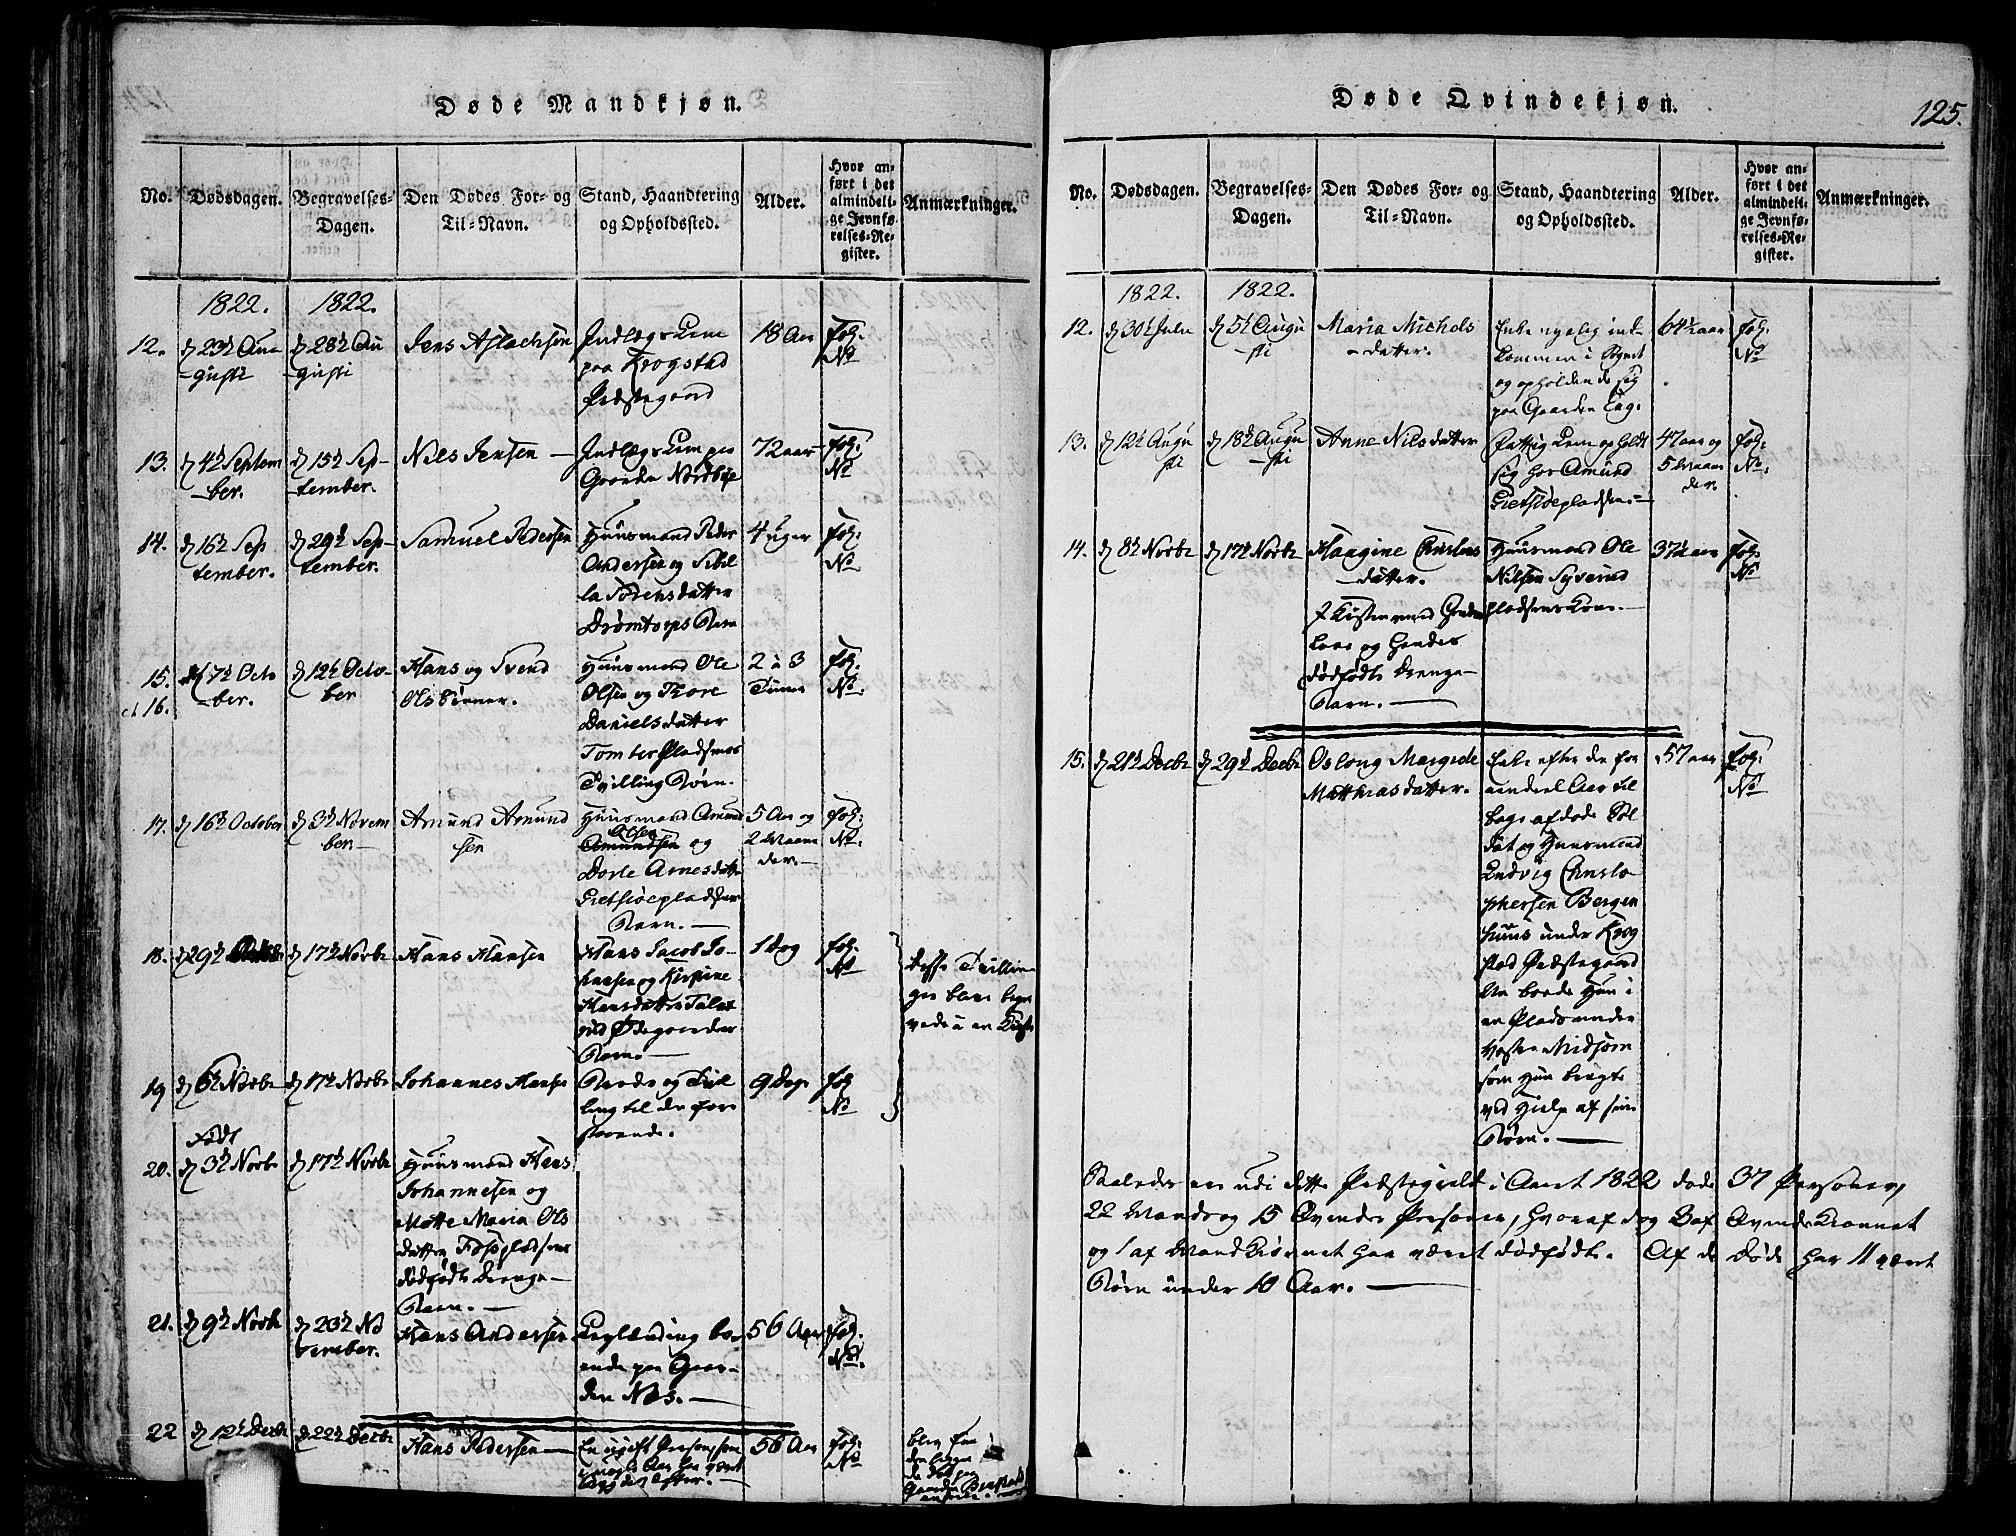 Døde Mandkjøn.
No.
Dødsdagen.
Begravelses-
Dagen.
Den Dødes For- og
Til-Navn.
Stand, Haandtering
og Opholdssted.
Alder.
Hvor an-
ført i det
almindeli-
ge Jevnfø-
relses-Re-
gister.
Anmærkninger.
1822.
1822.
12.
d 23de Au-
-gusti
d 28de Au
-gusti
Jens Aslachsen
Indlægs Lem
paa Krogstad
Præstegaard
18 Aar
fol.
No
13.
d 4de Septem
-ber.
d 15de Sep-
-tember.
Nils Jensen
Indlægs Lem paa
Gaarden Nordbye
72 aar
fol.
No
14.
d 16de Sep
tember.
d 29de Sep-
tember.
Samuel Pedersen
Huusmand Peder
Andersen og Sibil
la Sørensdatter
Drømtorps Barn
4 uger
fol.
No
15.
et 16.
d 7de Octo
-ber.
d 12te Octo-
ber
Hans og Svend
Olssønner.
Huusmand Ole
Olsen og Thore
Danielsdatter
Tomter Pladsens
Tvilling Børn.
2 à 3
Timer
fol.
No.
17.
d 16de October
d 3de Novem
ber
Amund Amund
sen
Huusmand Amund
Olsen
Amundsen og
Dorte Arnesdatter
Gretsiøepladsens
Barn.
5 Aar og
2 Maane
der.
fol.
No.
18.
d 29de
d 17de Novbr
Hans Hansen
Hans Jacob Jo-
hansen og Kirstine
Hansdatter
ved Ødegaarden
Barn.
1 Dag
fol.
No
Disse Tvillin-
ger bleve begra
vede i en Kiste
19
d 6te Novbr
d 17de Novbr
Johannes Hansen
Barn og Tvil
ling til de fore
staaende.
9 Dage
fol
No
Født
20.
d 3de Novbr
d 17de Novbr
Huusmand Hans
Johannesen og
Mette Maria Ols
datter Fosspladsens
dødfødte Drenge-
Barn.
21.
d 9de Novbr
d 23de No
vember.
Hans Andersen
boe
ende paa Gaar-
den Næs.
56 Aar
fol.
No.
22
d 12te Decbr
d 22de Decbr
Hans Pedersen
En ugift Person, som
i nogle Aar har været
56 Aar
fol.
No
blev fra
Gaarden
Døde Qvindekjøn.
125.
No.
Dødsdagen.
Begravelses-
Dagen.
Den Dødes For- og
Til-Navn.
Stand, Haandtering
og Opholdssted.
Alder.
Hvor an-
ført i det
almindeli-
ge Jevnfø-
relses-Re-
gister.
Anmærkninger.
1822.
1822.
12.
d 30te Julii
d 5te Augu
-sti
Maria Michels
-datter.
Enke nyelig ind-
kommen i Sognet
og opholdende sig
paa Gaarden
64½ aar
fol.
No
13.
d 12te Augu
sti
d 18de Augu
-sti
Anne Nilsdatter
Fattig Lem opholdt
sig hos Amund
Gretsiøepladsen.
47 aar og
5 Maane
der.
fol.
No.
14.
d 8de Novbr
d 17de Novbr
Haagine Christens
datter.
I Kisten med denne
Kone og hendes
dødfødte Drenge-
Barn.
Huusmand Ole
Nilsen Syverud
pladsens Kone.
37½ aar
fol.
No
15.
d 21de Decbr
d 29de Decbr
Oslong Margrete
Matthiasdatter.
Enke efter den for
Aar til
bage afdøde Sol
dat og Huusmand
Ludvig Christo
phersen Bergen
huus under Krog
stad Præstegaard
Nu boede Hun i
en Plads under
Vestre Midsem
som Hun brugte
ved Hjelp af sine
Børn.
57 aar
fol.
No
Saaledes ere udi dette Præstegield i Aaret 1822 døde 37 Personer,
22 Mands og 15 Qvinde Personer, hvoraf dog 3 af Qvindekiønnet
og 1 af Mandkiønnet har været dødfødte. Af de Døde har 11 været
Børn under 10 Aar.